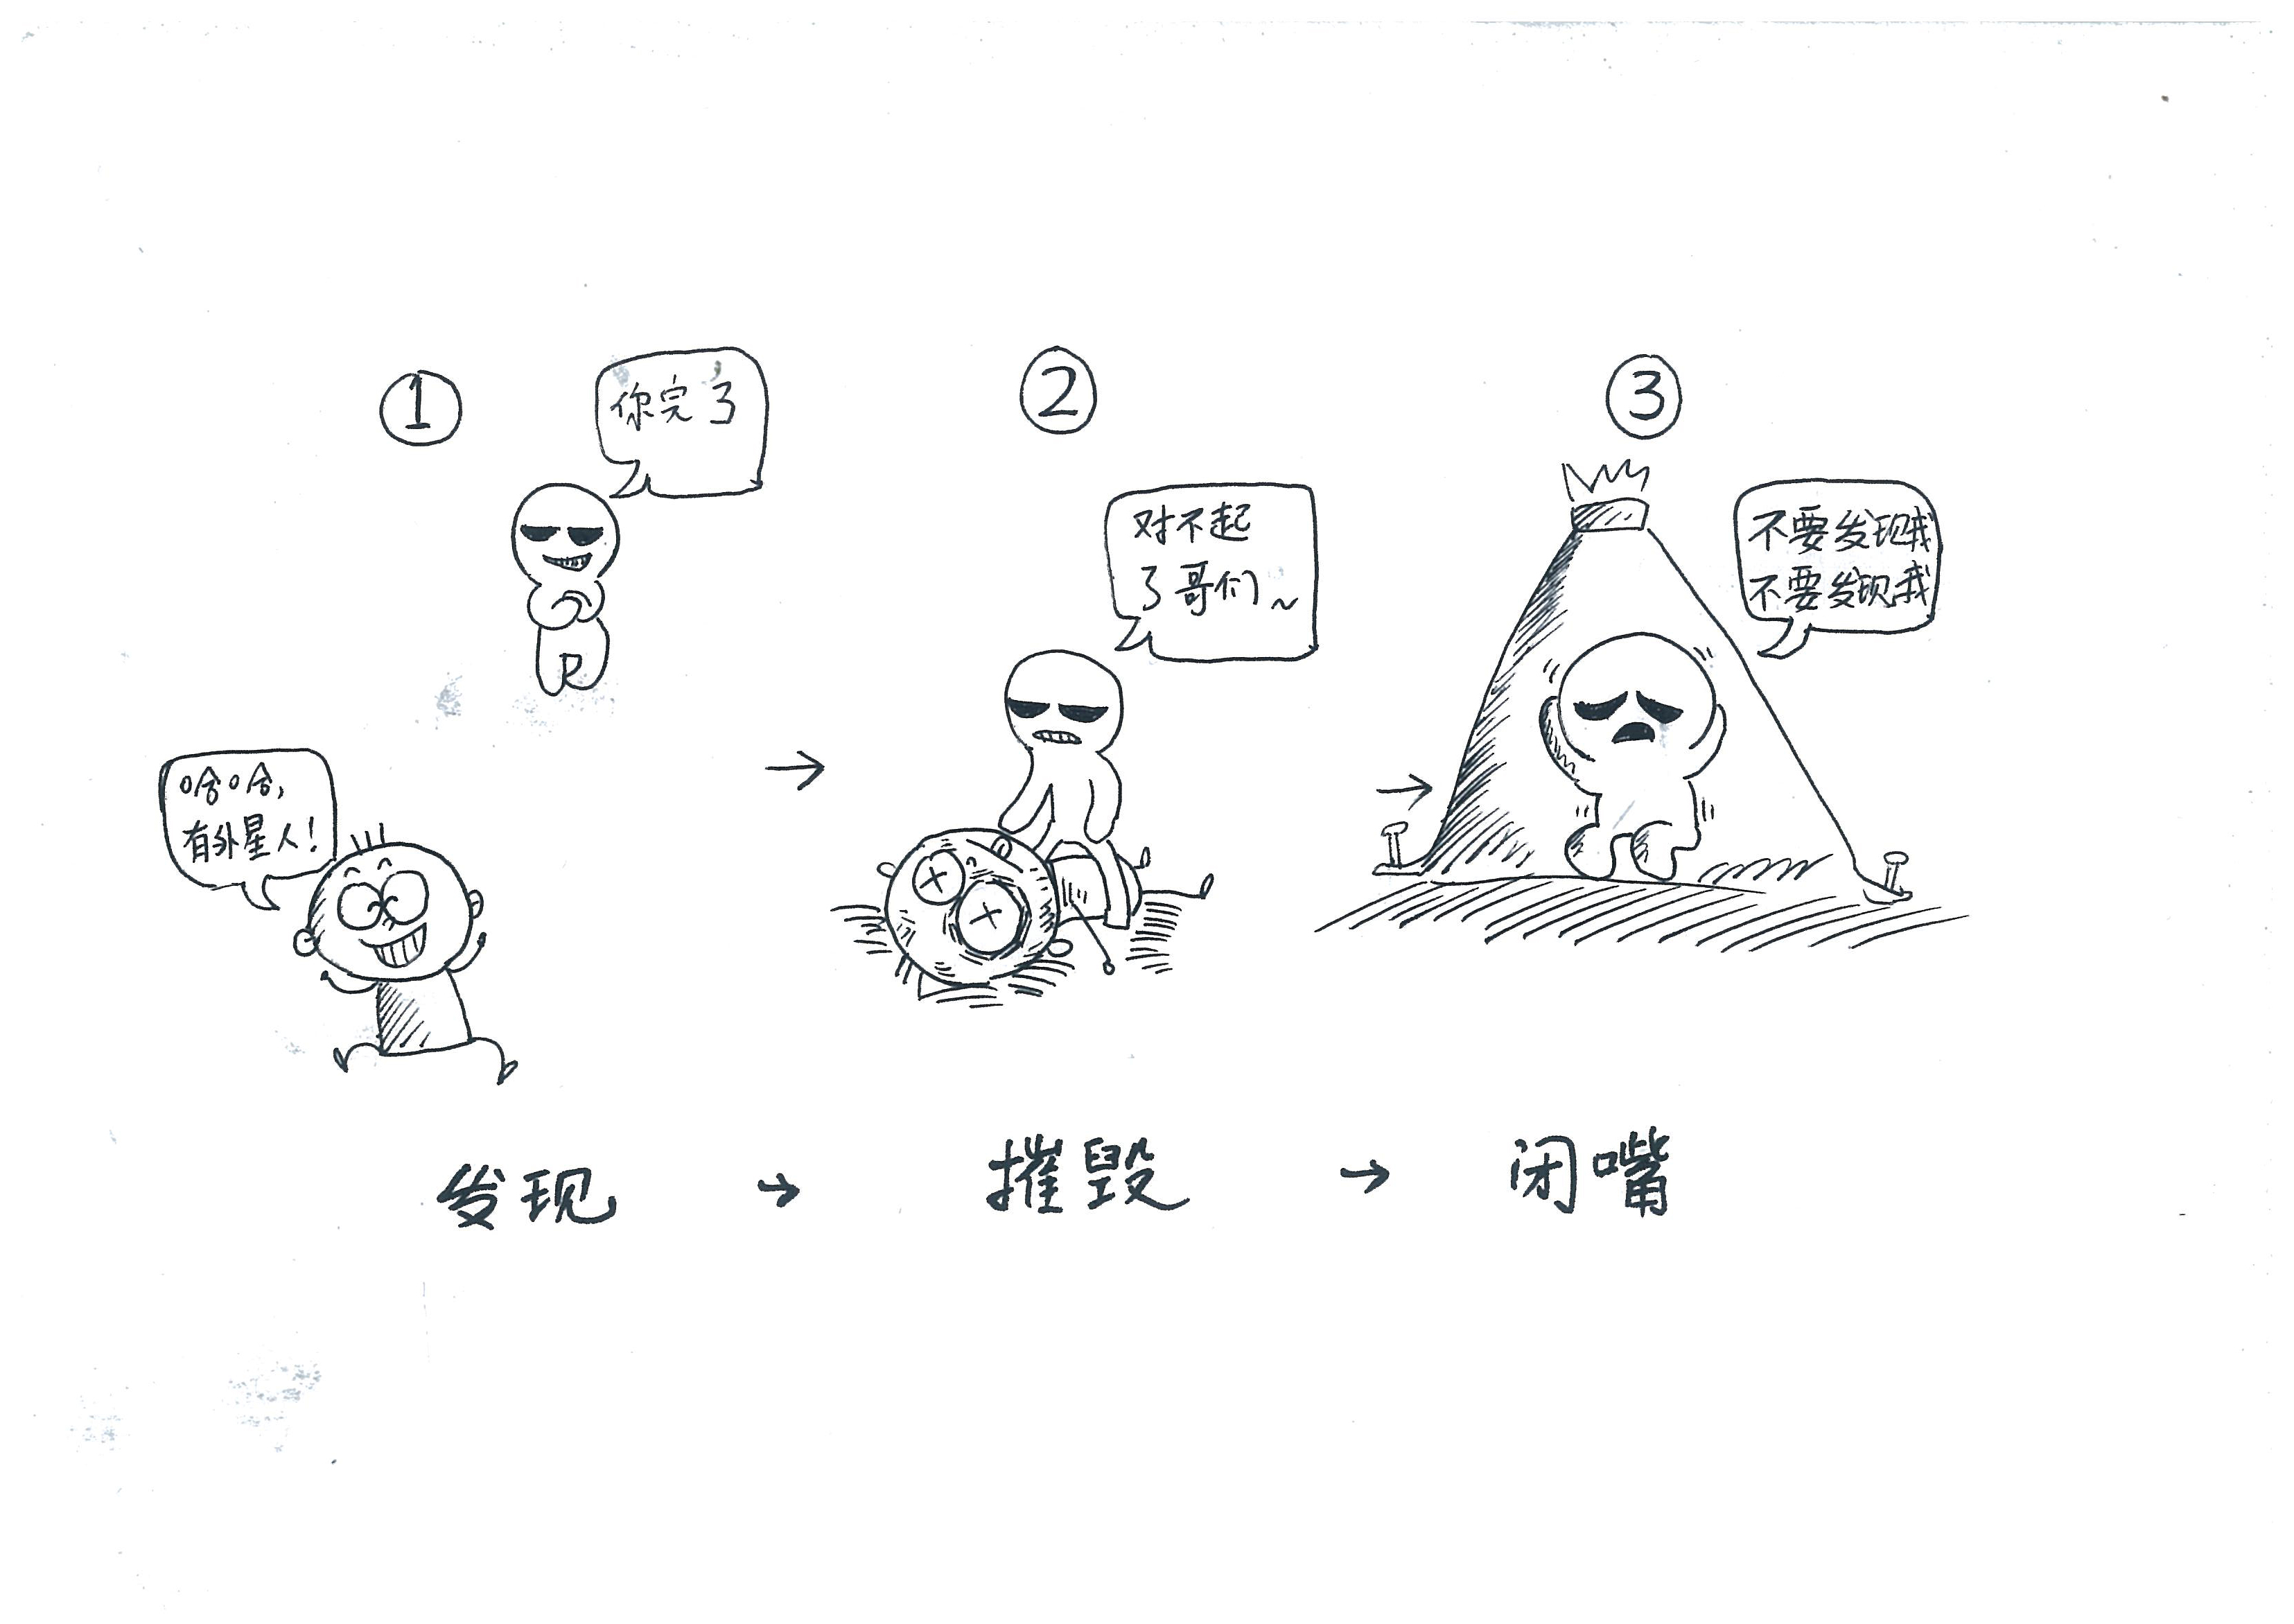 ①
你完了
哈哈,
有外星人!
②
对不起
了哥们~
③
不要发现我
不要发现我
发现 → 摧毁 → 闭嘴